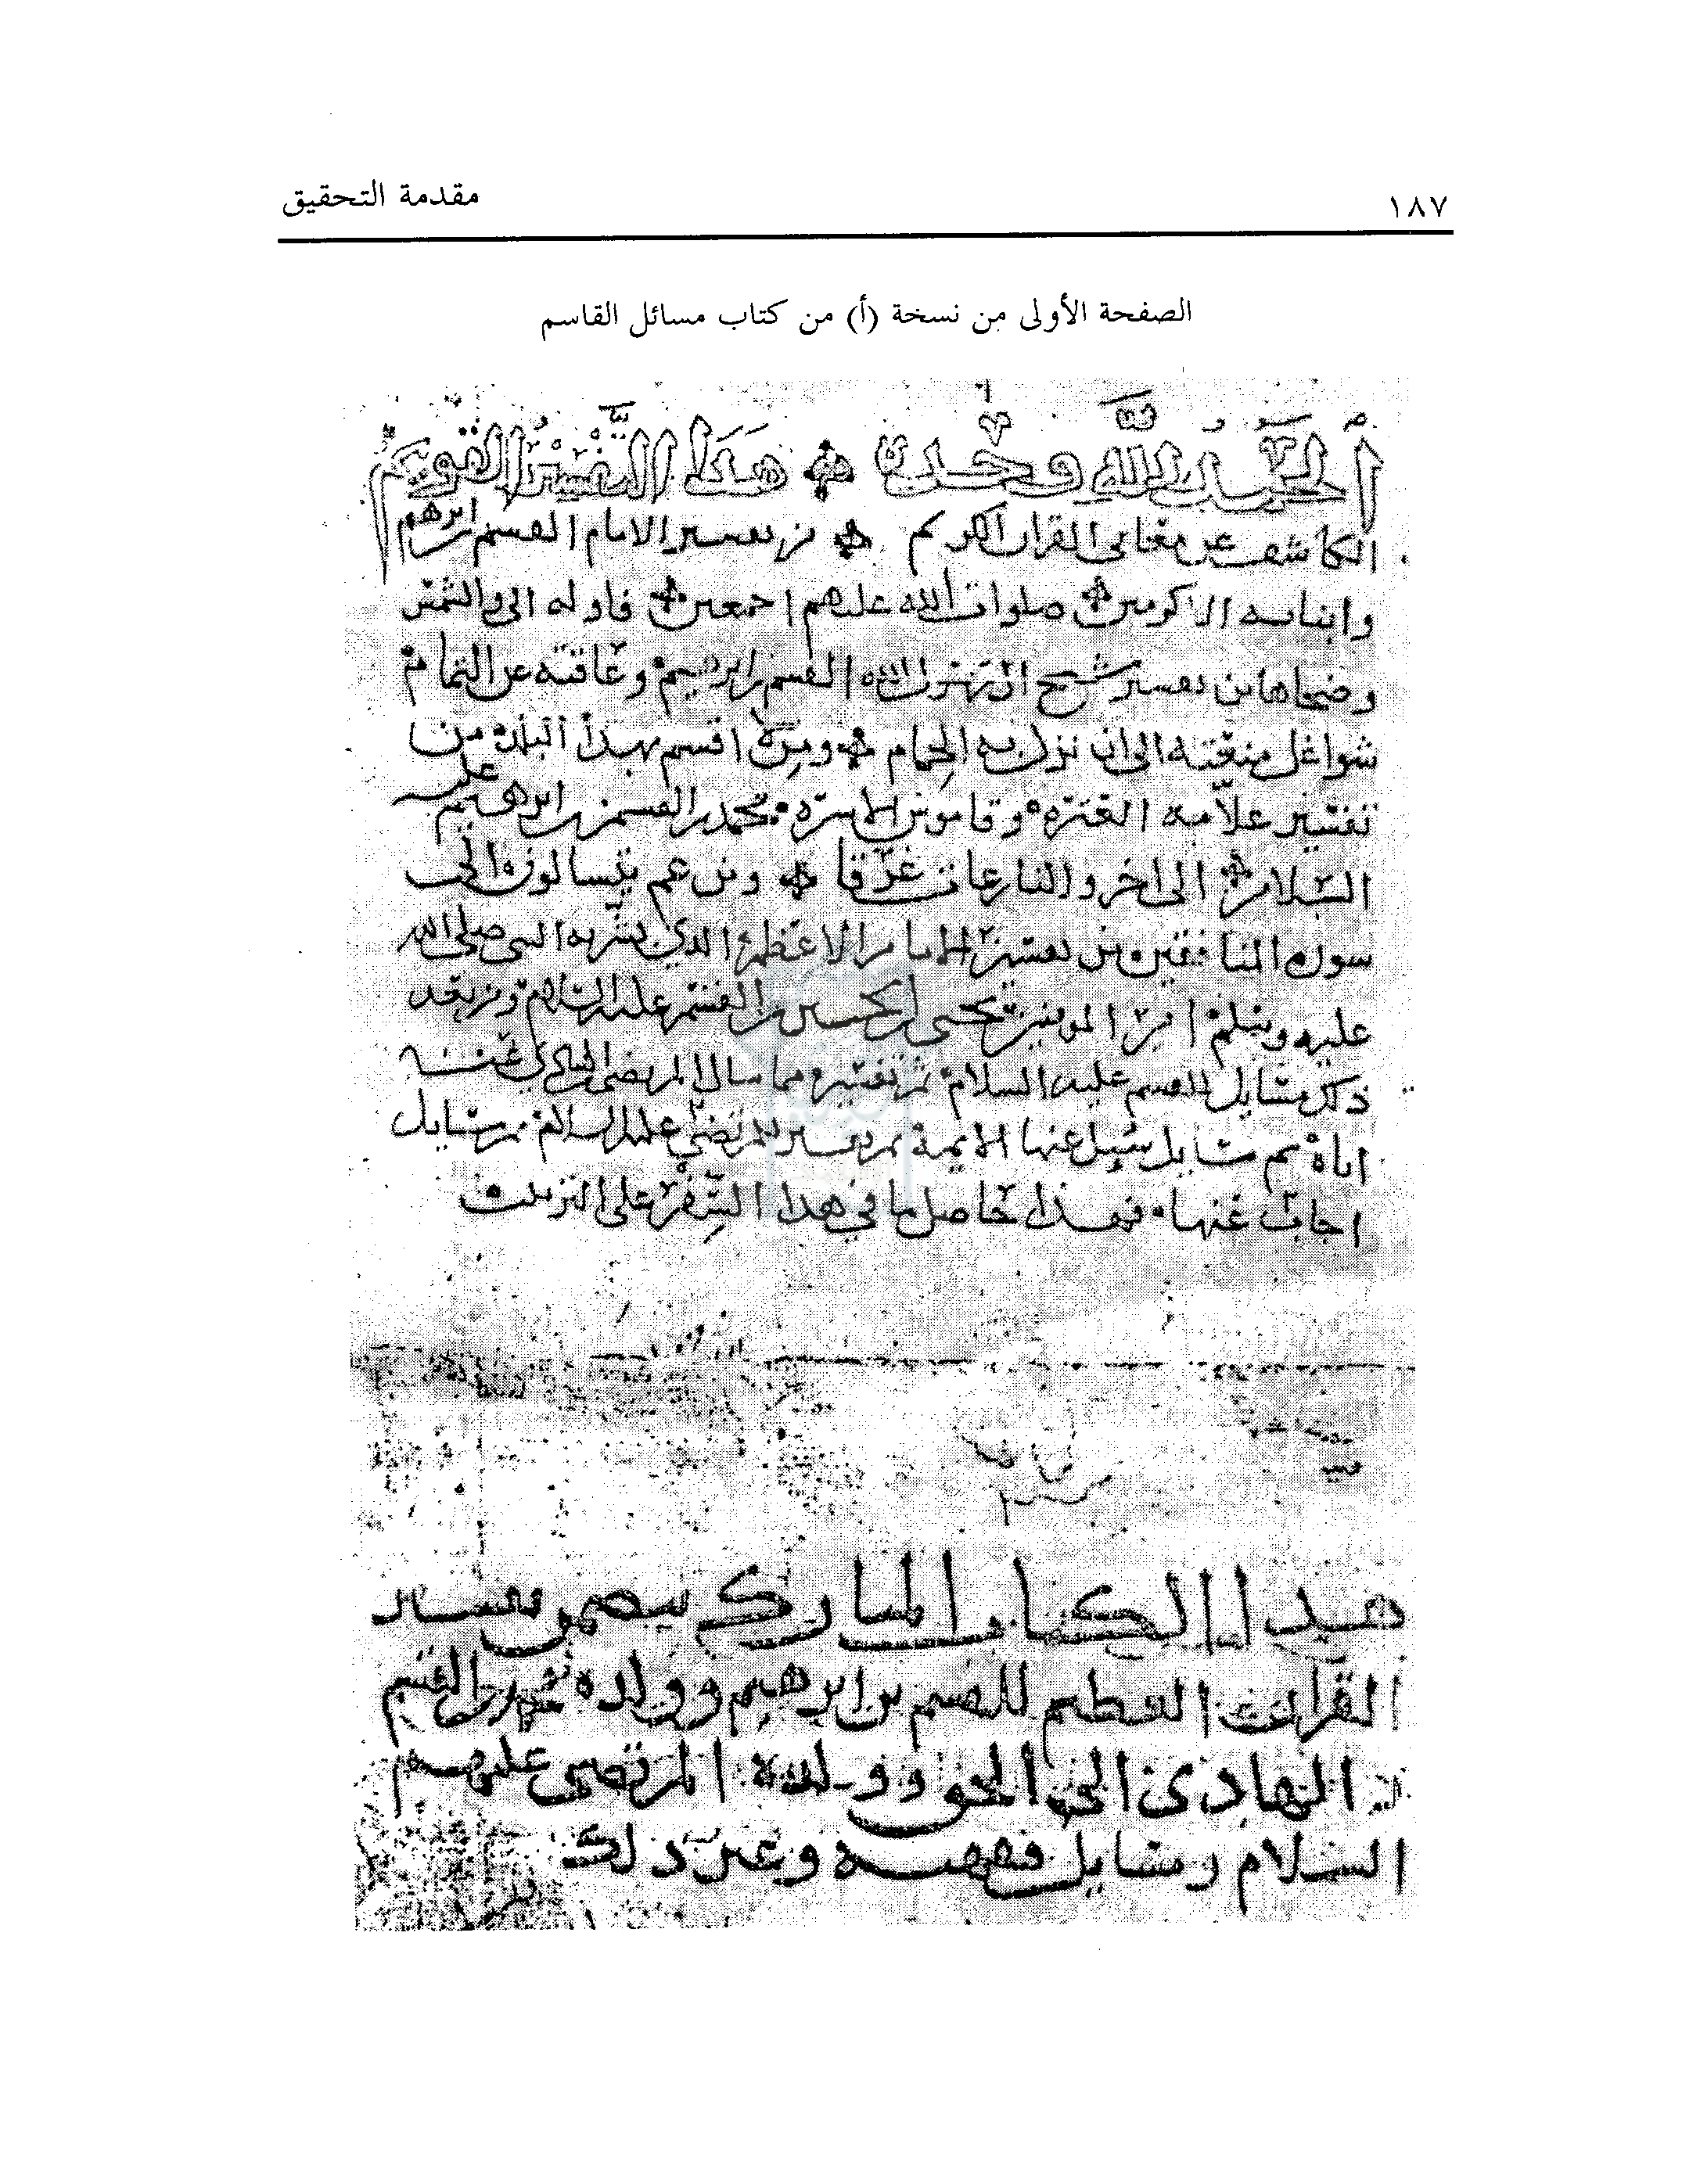 ١٨٧
مقدمة التحقيق
الصفحة الأولى من نسخة (أ) من كتاب مسائل القاسم
الحمد لله وحده هذا التفسير القويم
الكاشف عن معاني القران الكريم من تفسير الامام القسم بن ابرهيم
وابنايه الاكرمين صلوات الله عليهم اجمعين فاوله الى والشمس
وضحاها من تفسير القسم بن ابرهيم وعاقته عن التمام
شواغل منعته الى ان نزل به الحمام ومن لا اقسم بهذا البلد من
تفسير علامة العترة وقاموس الاسرة محمد بن القسم بن ابرهيم عليه
السلام الى اخر والنازعات غرقا ومن عم يتسالون الى
سورة المنافقين من تفسير الامام الاعظم الذي بشر به النبي صلى الله
عليه وسلم امير المومنين يحيى بن الحسين بن القسم عليه السلام ومن بعد
ذلك مسايل للقسم عليه السلام ثم تفسير مما سال المرتضى عنه
اباه ثم مسايل سيل عنها الايمة ثم تفسير للمرتضى عليه السلام ثم مسايل
اجاب عنها فهذا حاصل ما في هذا السفر على
هذا الكتاب المبارك تفسير
القران العظيم للقسم بن ابرهيم وولده محمد بن القسم
الهادي الى الحق وولده المرتضى عليهم
السلام ومسايل فقهيه وغير ذلك